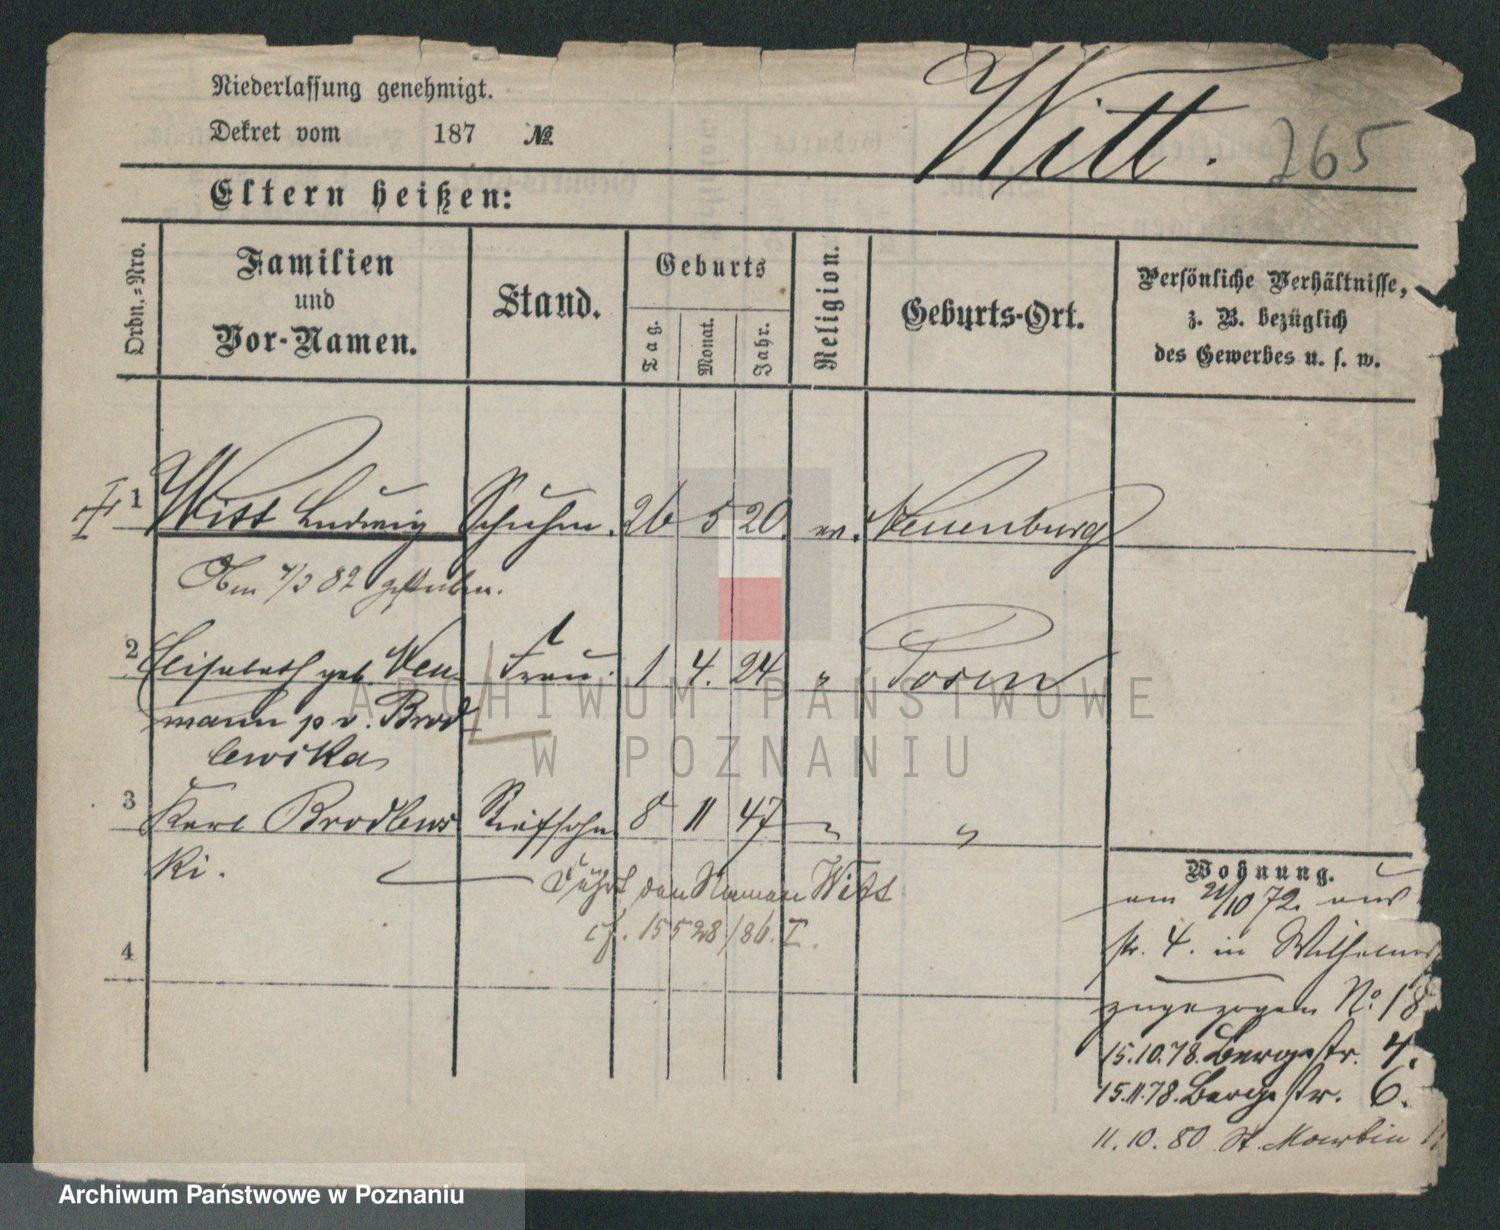 Niederlassung genehmigt.
Dekret vom 187 №
Witt. 265
Eltern heißen:
Ordn.-Nro.
Familien
und
Vor-Namen.
Stand.
Geburts
Tag.
Monat.
Jahr.
Religion.
Geburts-Ort.
Persönliche Verhältnisse,
z. B. bezüglich
des Gewerbes u. s. w.
1 Witt Ludwig Schuhm. 26 5 20. ev. Neuenburg
Am 7/3 82 gestorben.
2 Elisabeth geb. Neu Frau 1 4. 24 " Posen
mann p v. Brod
lewska
3 Karl Brodlews Stiefsohn 8 11 47 " "
ki.
Führt den Namen Witt
cf. 15528/86. I.
4
Wohnung.
am 21/10 72. aus
str. 4. in Wilhelms
zugezogen No. 18
15.10.78. Bergstr. 4.
15.11.78. Bergstr. 6.
11.10.80 St. Martin
ARCHIWUM PAŃSTWOWE
W POZNANIU
Archiwum Państwowe w Poznaniu